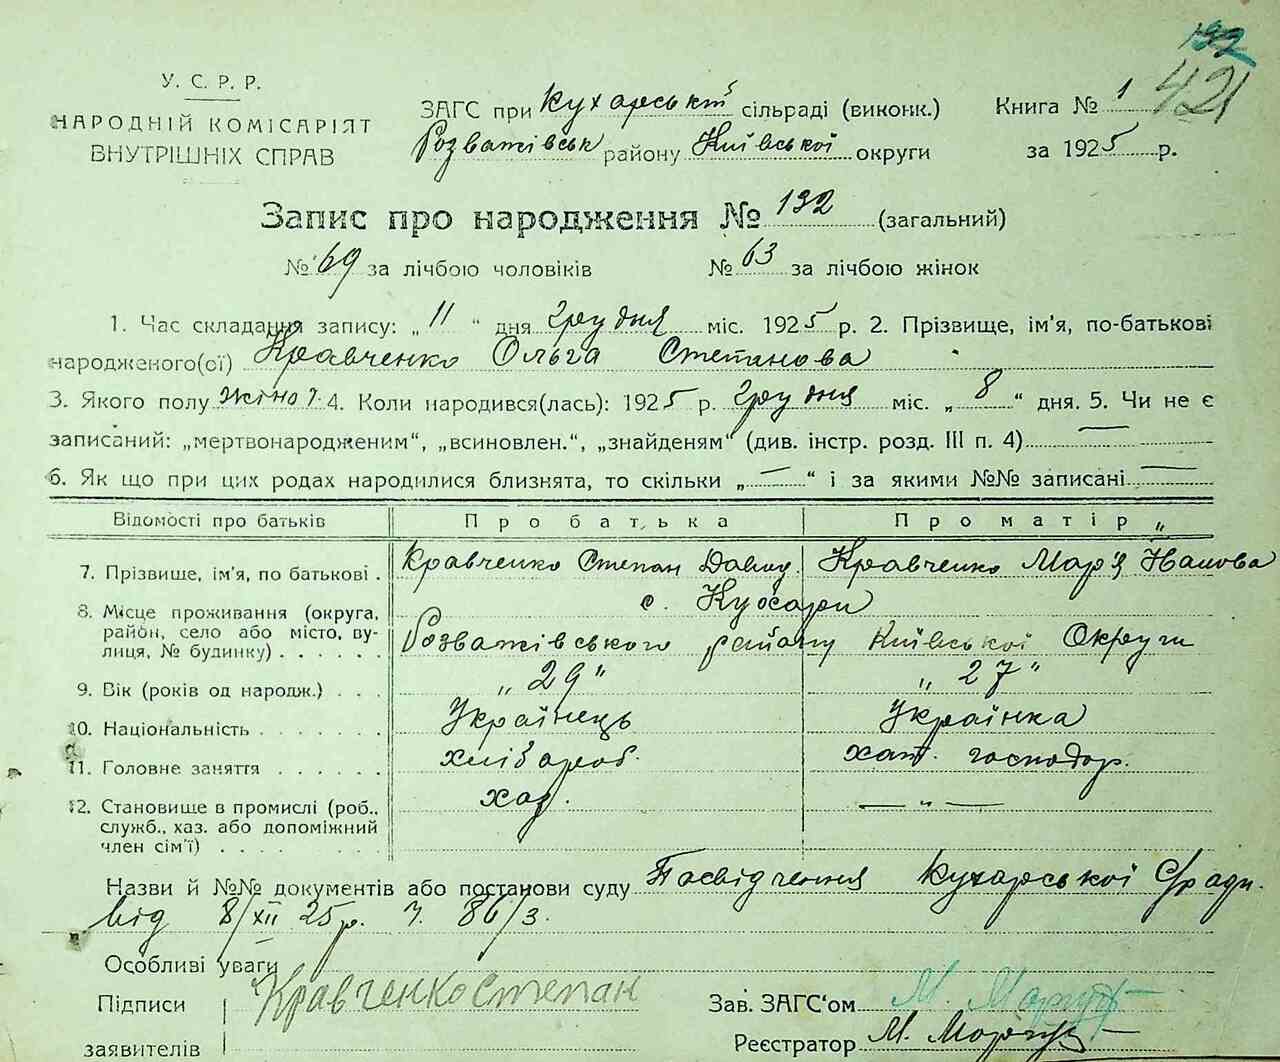 192
421
У. С. Р. Р.
НАРОДНІЙ КОМІСАРІЯТ
ВНУТРІШНІХ СПРАВ
ЗАГС при Кухарські сільраді (виконк.)
Розважівськ району Київської округи
Книга № 1
за 1925 р.
Запис про народження № 132 (загальний)
№ 69 за лічбою чоловіків № 63 за лічбою жінок
1. Час складання запису: „ 11 “ дня грудня міс. 1925 р. 2. Прізвище, ім'я, по-батькові
народженого(ої) Кравченко Ольга Степанова
3. Якого полу жіноч. 4. Коли народився(лась): 1925 р. грудня міс. „ 8 “ дня. 5. Чи не є
записаний: „мертвонародженим“, „всиновлен.“, „знайденям“ (див. інстр. розд. III п. 4) —
6. Як що при цих родах народилися близнята, то скільки „ — “ і за якими №№ записані —
Відомості про батьків Про батька Про матір
7. Прізвище, ім'я, по батькові . Кравченко Степан Давид. Кравченко Мар'я Іванова
8. Місце проживання (округа, с. Кухари
район, село або місто, ву- Розважівського району Київської Округи
лиця, № будинку) . . . . . .
9. Вік (років од народж.) . . . „ 29 “ „ 27 “
10. Національність . . . . . . . Українець Українка
11. Головне заняття . . . . . . хлібороб. хат. господар.
12. Становище в промислі (роб., хаз. — „ —
служб., хаз. або допоміжний
член сім'ї) . . . . . . . .
Назви й №№ документів або постанови суду Посвідчення Кухарської С/ради.
від 8/XII 25р. ч. 86/3.
Особливі уваги
Підписи Кравченко Степан
заявителів
Зав. ЗАГС‘ом М.
Реєстратор М.